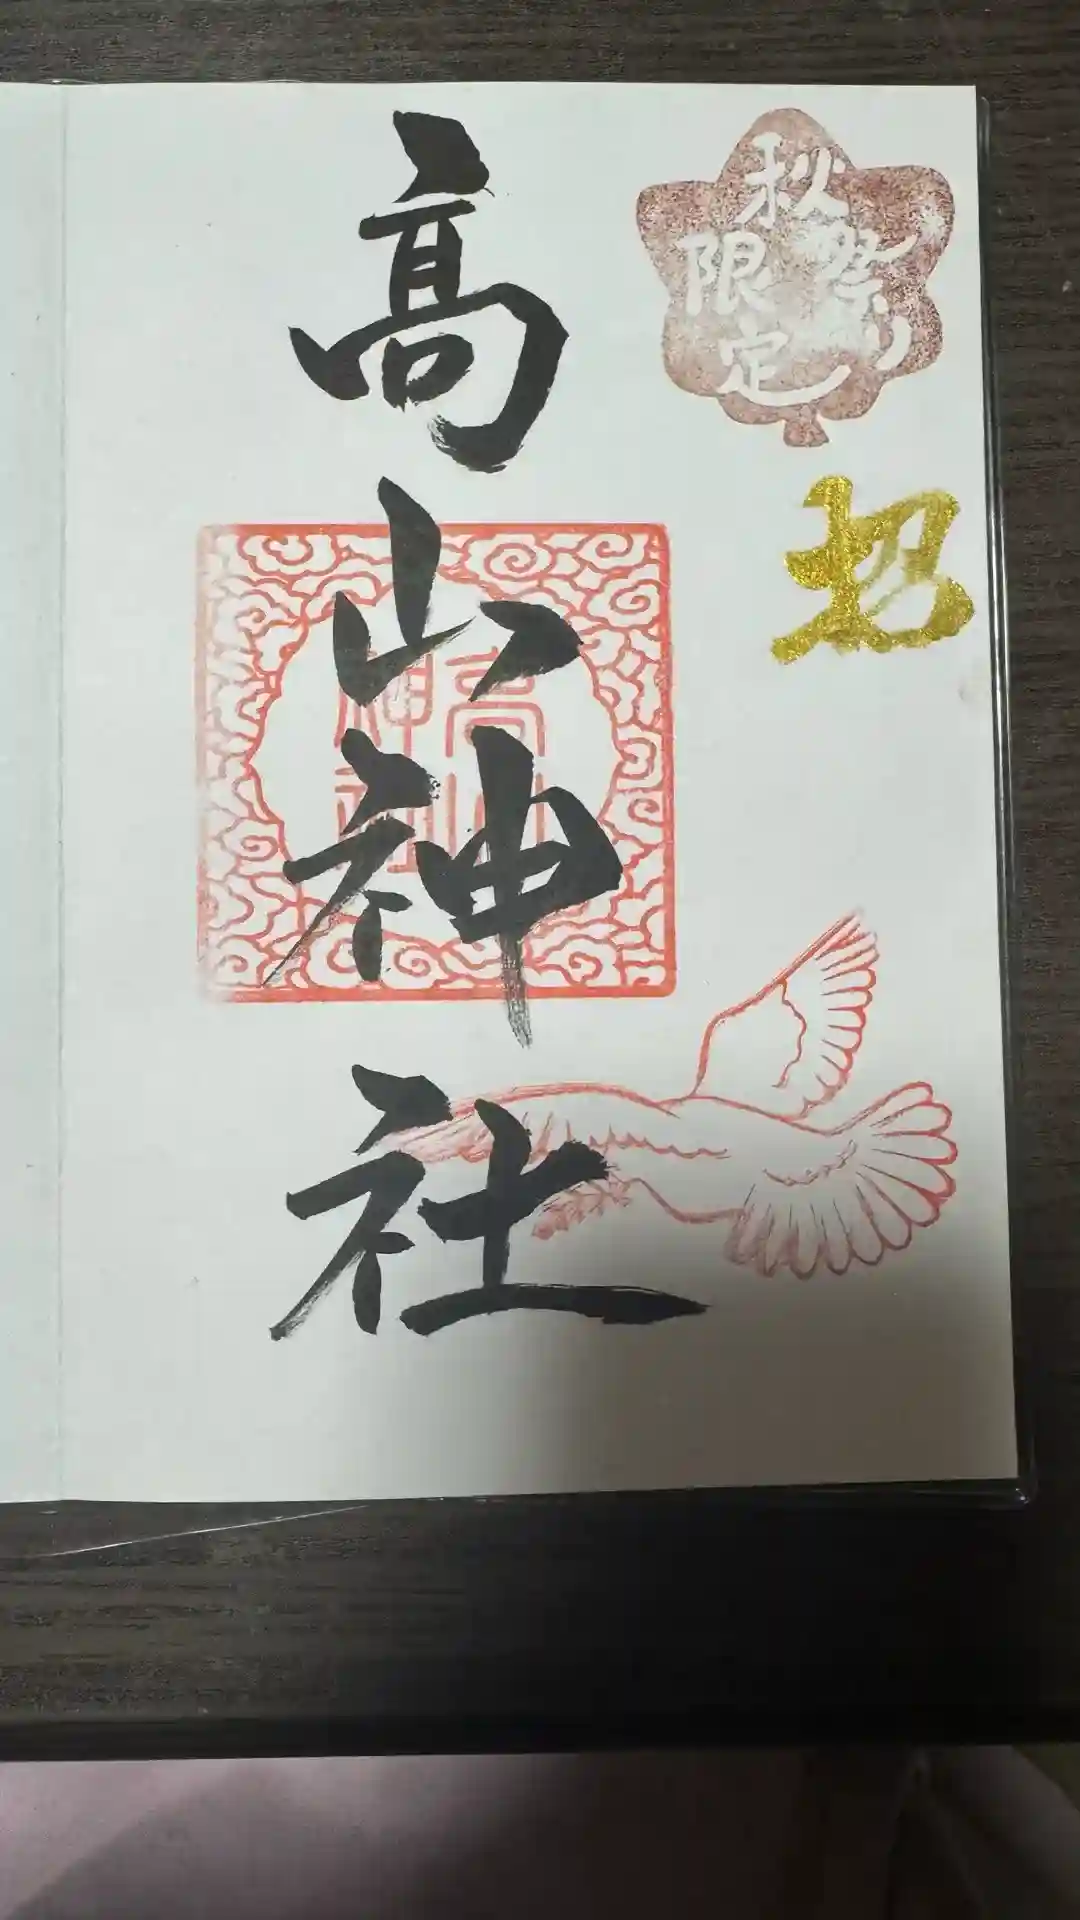 秋祭り
限定
招
高山神社
高山
神社